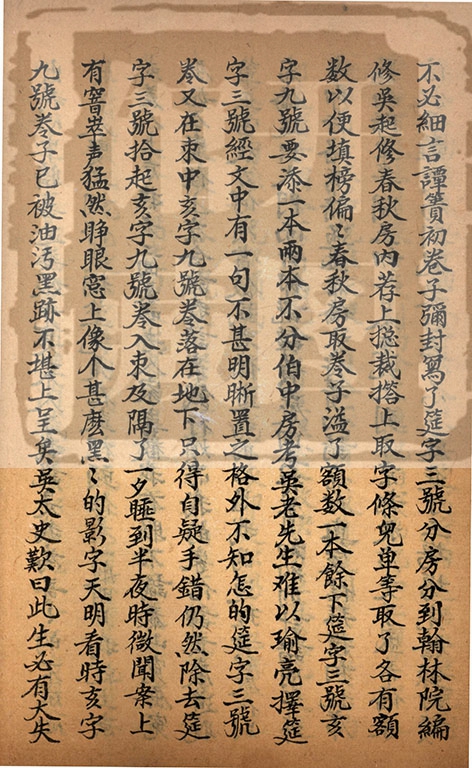 不必細言譚簣初卷子彌封寫了筵字三號分房分到翰林院編
修吳起修春秋房內荐上捴裁搭上取字條兒单等取了各有額
数以便填榜偏〻春秋房取卷子溢了額数一本餘下筵字三號亥
字九號要添一本兩本不分伯中房考吳老先生难以瑜亮擇筵
字三號經文中有一句不甚明晰置之格外不知怎的筵字三號
卷又在束中亥字九號卷落在地下只得自疑手錯仍然除去筵
字三號拾起亥字九號卷入束及隔了一夕睡到半夜時微聞案上
有窸窣声猛然睜眼窓上像个甚麽黑〻的影字天明看時亥字
九號卷子已被油污黑跡不堪上呈矣吳太史歎曰此生必有大失